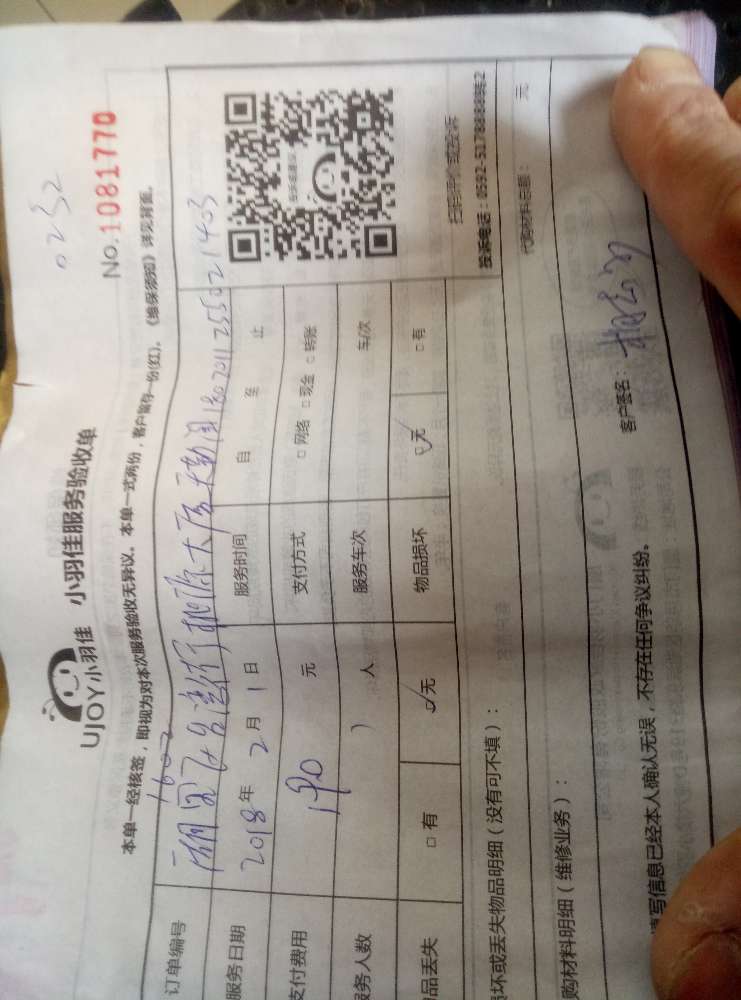 0252
No.1081770
UJOY小羽佳 小羽佳服务验收单
本单一经核签，即视为对本次服务验收无异议。本单一式两份，客户留存一份(红)。《维保须知》详见背面。
1602
订单编号 1802011255021403
服务日期 2018年 2月 1日 服务时间 自 至 止
支付费用 190 元 支付方式 □网络 □现金 □转账
服务人数 1 人 服务车次 车/次
品丢失 □有 ☑无 物品损坏 ☑无 □有
扫码评价或投诉
投诉电话：0592-5178888转2
坏或丢失物品明细（没有可不填）：
购材料明细（维修业务）： 代购材料总额： 元
填写信息已经本人确认无误，不存在任何争议纠纷。 客户签名：